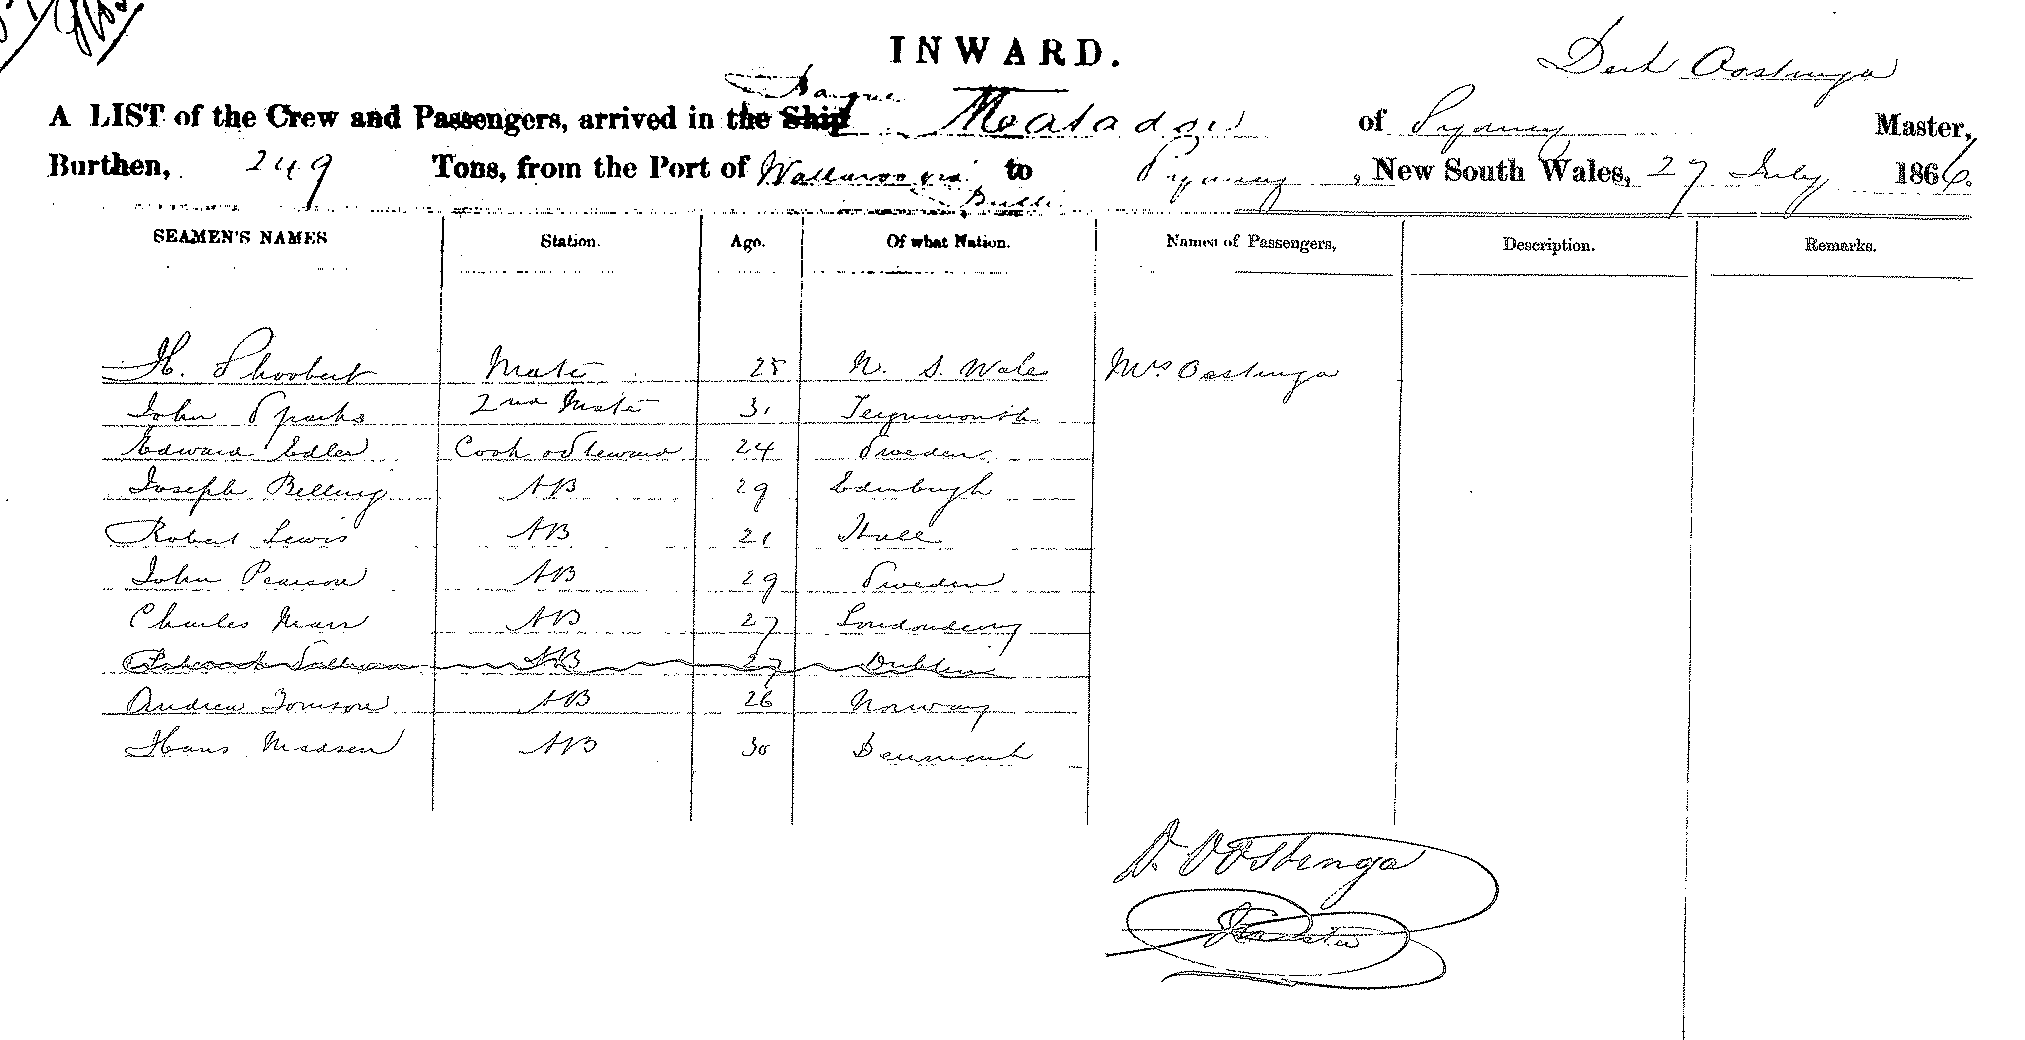 INWARD.
Derk Oostinga
Barque
A LIST of the Crew and Passengers, arrived in the Ship Matador of Sydney Master,
Burthen, 249 Tons, from the Port of Wallaroo via Bulli to Sydney, New South Wales, 27 July 1866.
SEAMEN'S NAMES Station. Age. Of what Nation. Names of Passengers, Description. Remarks.
H. Shoobert Mate 28 N. S. Wales Mrs Oostinga
John Sparks 2nd Mate 31 Teignmouth
Edward Edler Cook & Steward 24 Sweden
Joseph Belling AB 29 Edinburgh
Robert Lewis AB 21 Hull
John Pearson AB 29 Sweden
Charles Marr AB 27 Londonderry
Sullivan AB 27 Dublin
Andrew Tomson AB 26 Norway
Hans Madsen AB 30 Denmark
D. Oostinga
Master